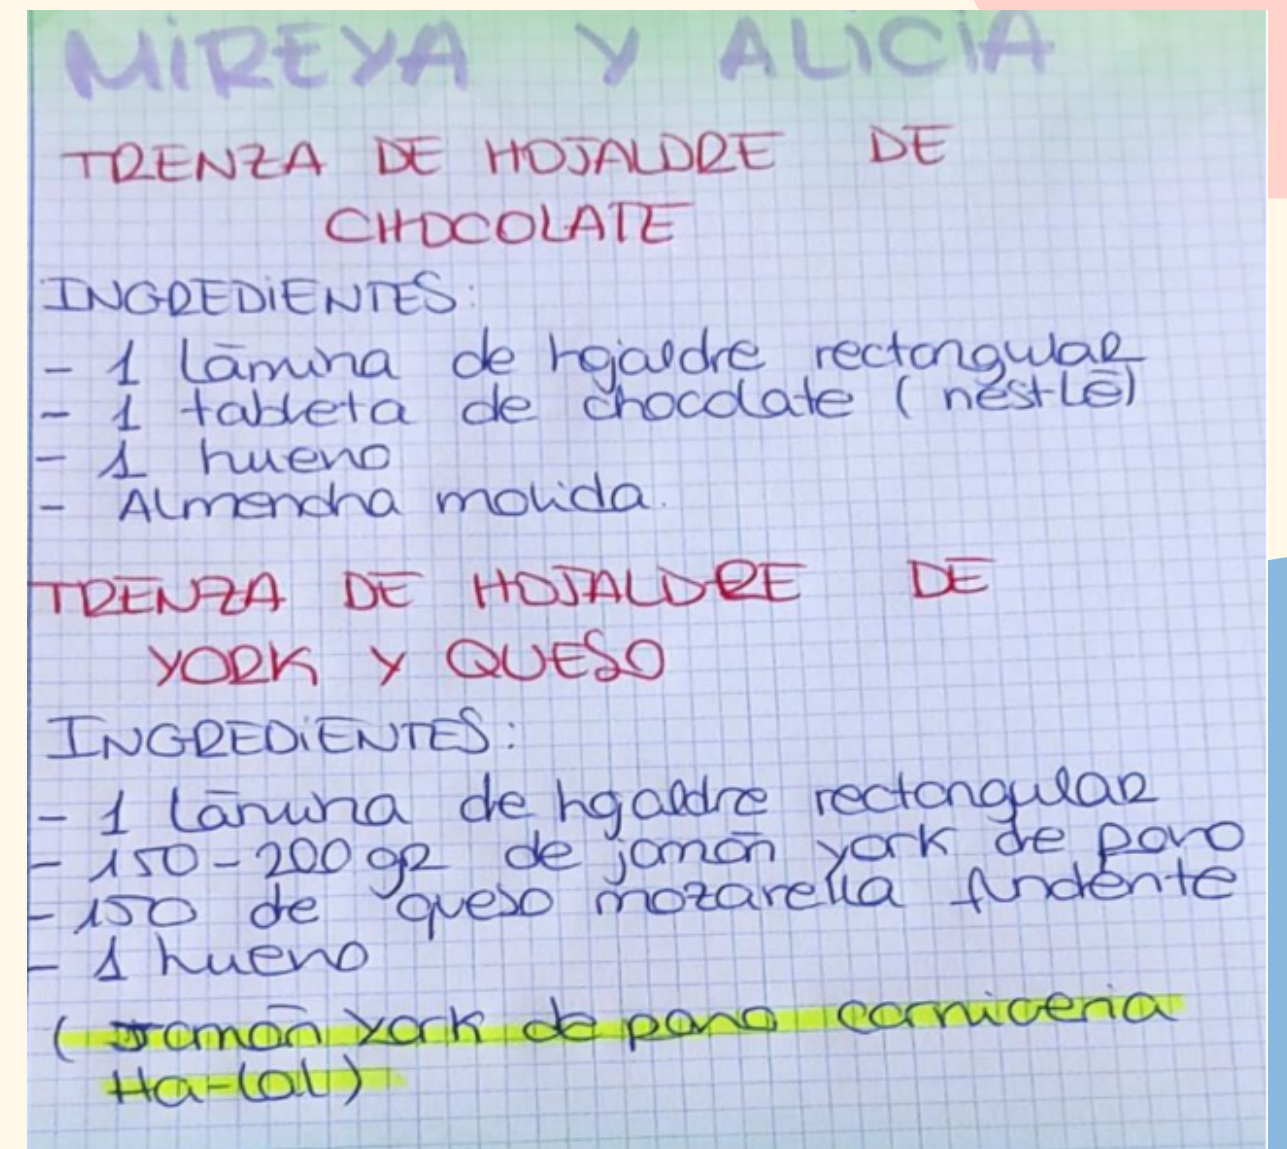 MIREYA Y ALICIA
TRENZA DE HOJALDRE DE
CHOCOLATE
INGREDIENTES:
- 1 lāmina de hojaldre rectangular
- 1 tableta de chocolate (nestlē)
- 1 huevo
- Almendra molida.
TRENZA DE HOJALDRE DE
YORK Y QUESO
INGREDIENTES:
- 1 lāmina de hojaldre rectangular
- 150-200 gr de jamōn york de pavo
- 150 de queso mozarella fundente
- 1 huevo
( Jamōn york de pavo carniceria
Ha-lal)